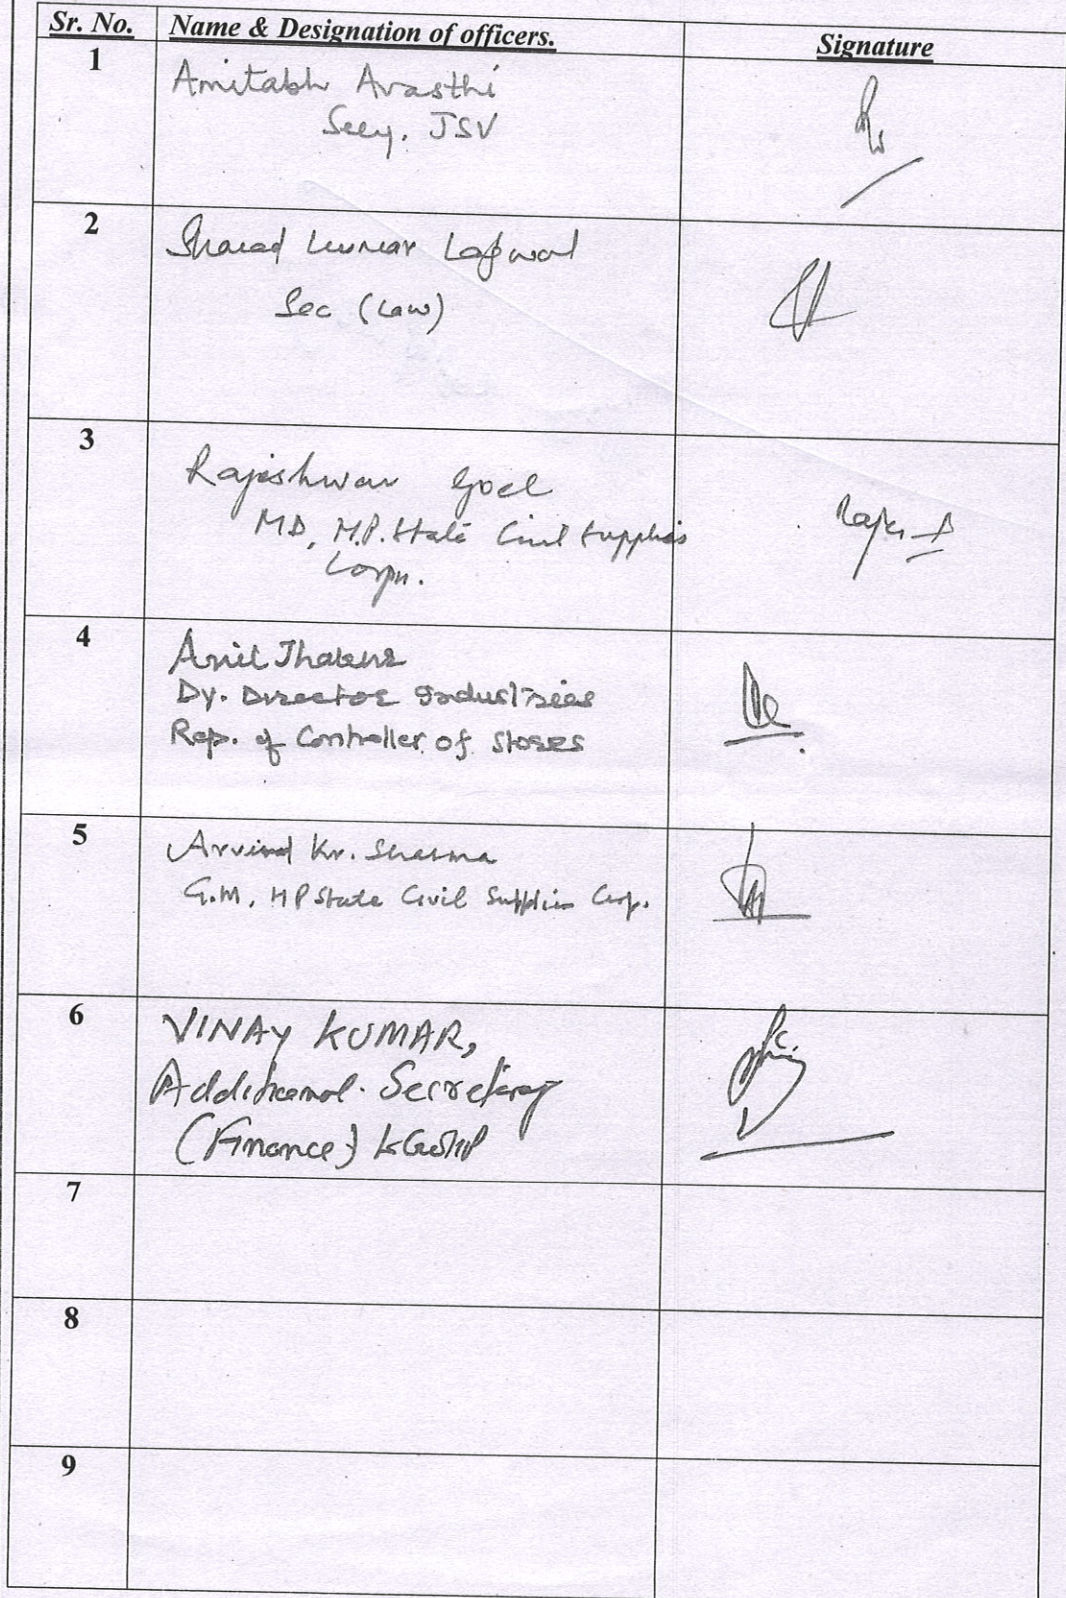 Sr. No. Name & Designation of officers. Signature
1
Amitabh Avasthi
Secy. JSV
2
Sharad Kumar Lagwal
Sec (Law)
3
Rajeshwar Goel
MD, H.P. State Civil Supplies
Corpn.
4
Anil Thakur
Dy. Director Industries
Rep. of Controller of Stores
5
Arvind Kr. Sharma
G.M, HP State Civil Supplies Corp.
6
VINAY KUMAR,
Additional Secretary
(Finance)
7
8
9